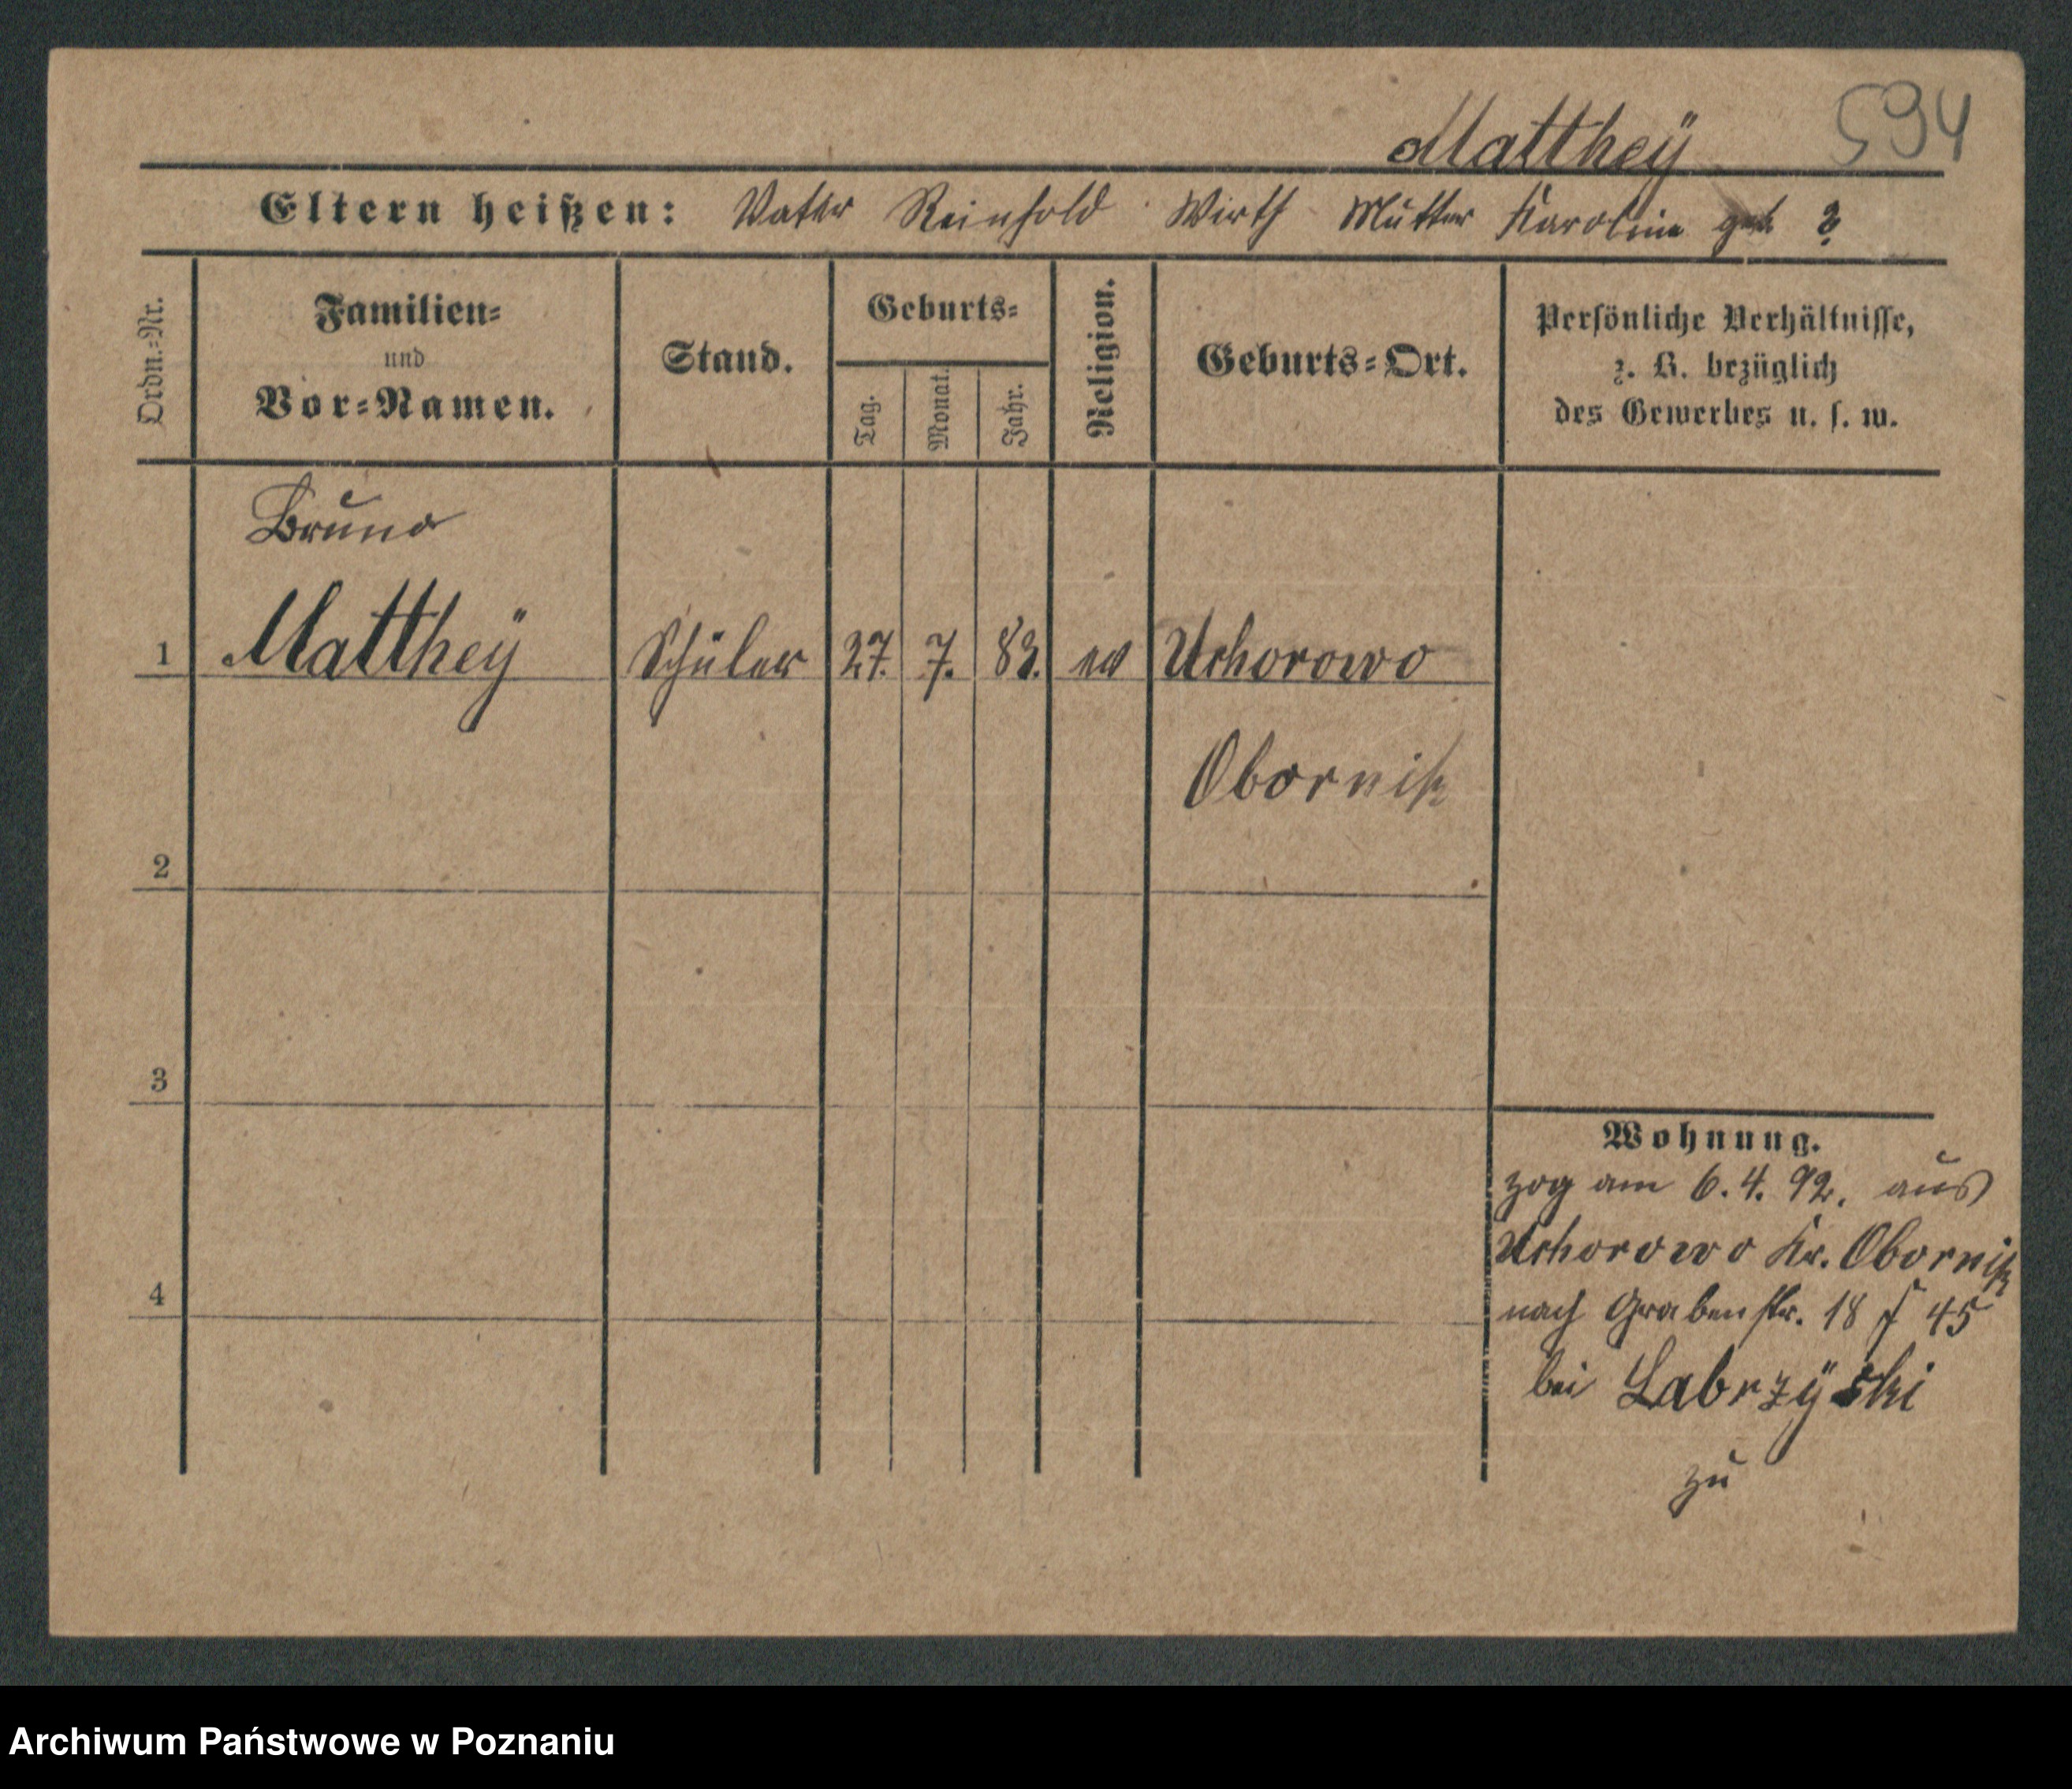 594
Mattheÿ
Eltern heißen: Vater Reinhold Wirth Mutter Karoline geb ?
Ordn.=Nr.
Familien=
und
Vor=Namen.
Stand.
Geburts=
Tag.
Monat.
Jahr.
Religion.
Geburts=Ort.
Persönliche Verhältnisse,
z. B. bezüglich
des Gewerbes u. s. w.
Bruno
1 Mattheÿ Schüler 27. 7. 83. ev Uchorowo
Obornik
2
3
4
Wohnung.
zog am 6. 4. 92. aus
Uchorowo Kr. Obornik
nach Grabenstr. 18 45
bei Labrzÿski
zu
Archiwum Państwowe w Poznaniu